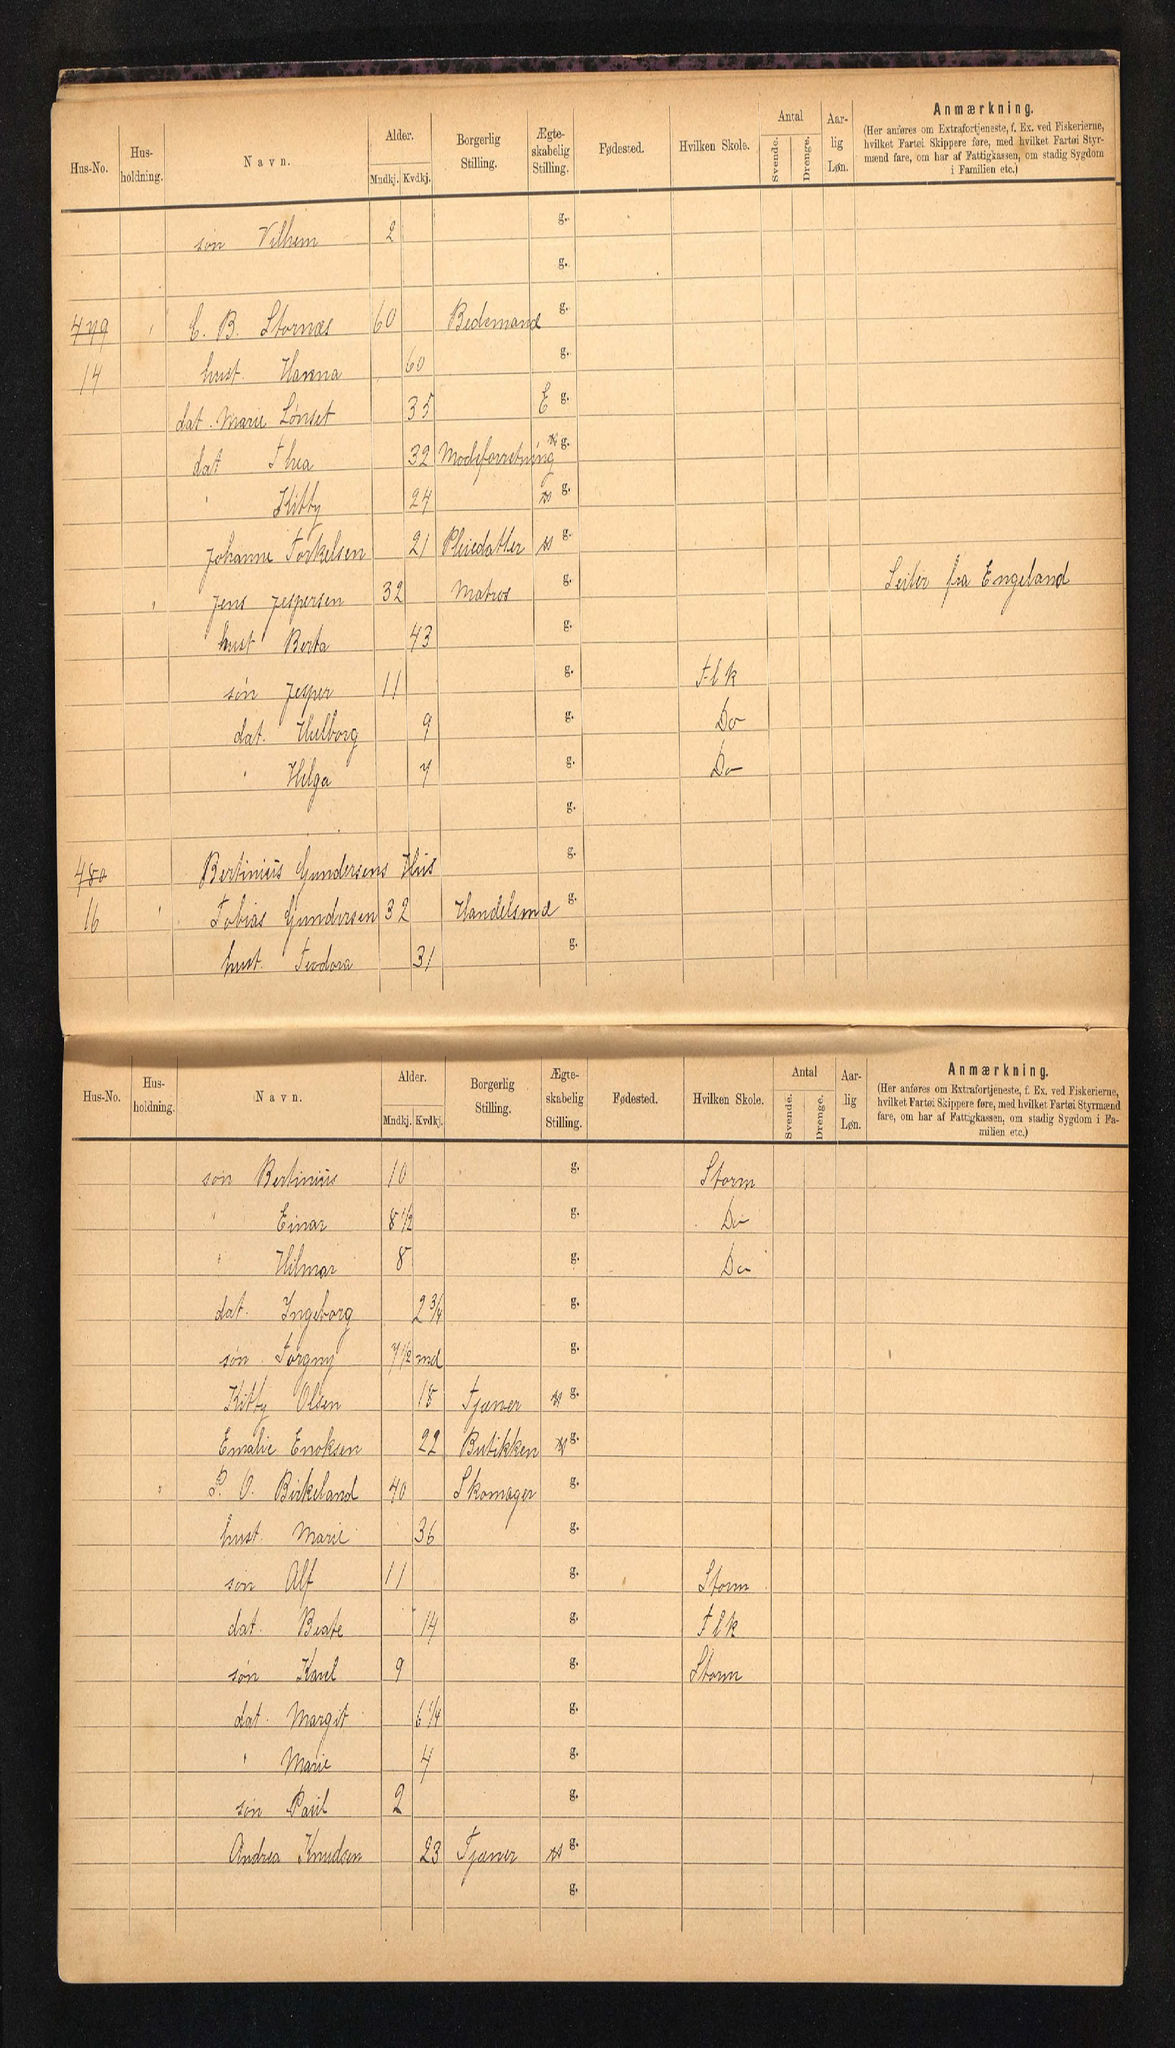 Hus-No. Hus-holdning. Navn. Alder. Mndkj. Kvdkj. Borgerlig Stilling. Ægte-skabelig Stilling. Fødested. Hvilken Skole. Antal Svende. Drenge. Aar-lig Løn. Anmærkning.
(Her anføres om Extrafortjeneste, f. Ex. ved Fiskerierne, hvilket Fartøi Skippere føre, med hvilket Fartøi Styr-mænd fare, om har af Fattigkassen, om stadig Sygdom i Familien etc.)
søn Vilhem 2 g.
g.
479 " C. B. Stornæs 60 Bedemand g.
14 hust. Hanna 60 g.
dat. Marie Lønset 35 E g.
dat Thea 32 Modeforretning g.
" Kitty 24 g.
Johanne Torkelsen 21 Pleiedatter g.
" Jens Jespersen 32 Matros g. Seiler fra Engeland
hust Berta 43 g.
søn Jesper 11 g. Flk
dat. Hulborg 9 g. Do
" Helga 7 g. Do
g.
480 Bertinius Gundersens Hus g.
16 " Tobias Gundersen 32 Handelsmd g.
hust. Teodora 31 g.
Hus-No. Hus-holdning. Navn. Alder. Mndkj. Kvdkj. Borgerlig Stilling. Ægte-skabelig Stilling. Fødested. Hvilken Skole. Antal Svende. Drenge. Aar-lig Løn. Anmærkning.
(Her anføres om Extrafortjeneste, f. Ex. ved Fiskerierne, hvilket Fartøi Skippere føre, med hvilket Fartøi Styrmænd fare, om har af Fattigkassen, om stadig Sygdom i Fa-milien etc.)
søn Bertinius 10 g. Storm
" Einar 8 1/2 g. Do
" Hilmar 8 g. Do
dat. Ingeborg 2 3/4 g.
søn Torgny 7 1/2 md g.
Kitty Olsen 18 Tjæner g.
Emalie Enoksen 22 Butikken g.
" P. O. Birkeland 40 Skomager g.
hust. Marie 36 g.
søn Alf 11 g. Storm
dat. Beate 14 g. Flk
søn Karl 9 g. Storm
dat. Margit 6 1/4 g.
" Marie 4 g.
søn Paul 2 g.
Andrea Knudsen 23 Tjæner g.
g.